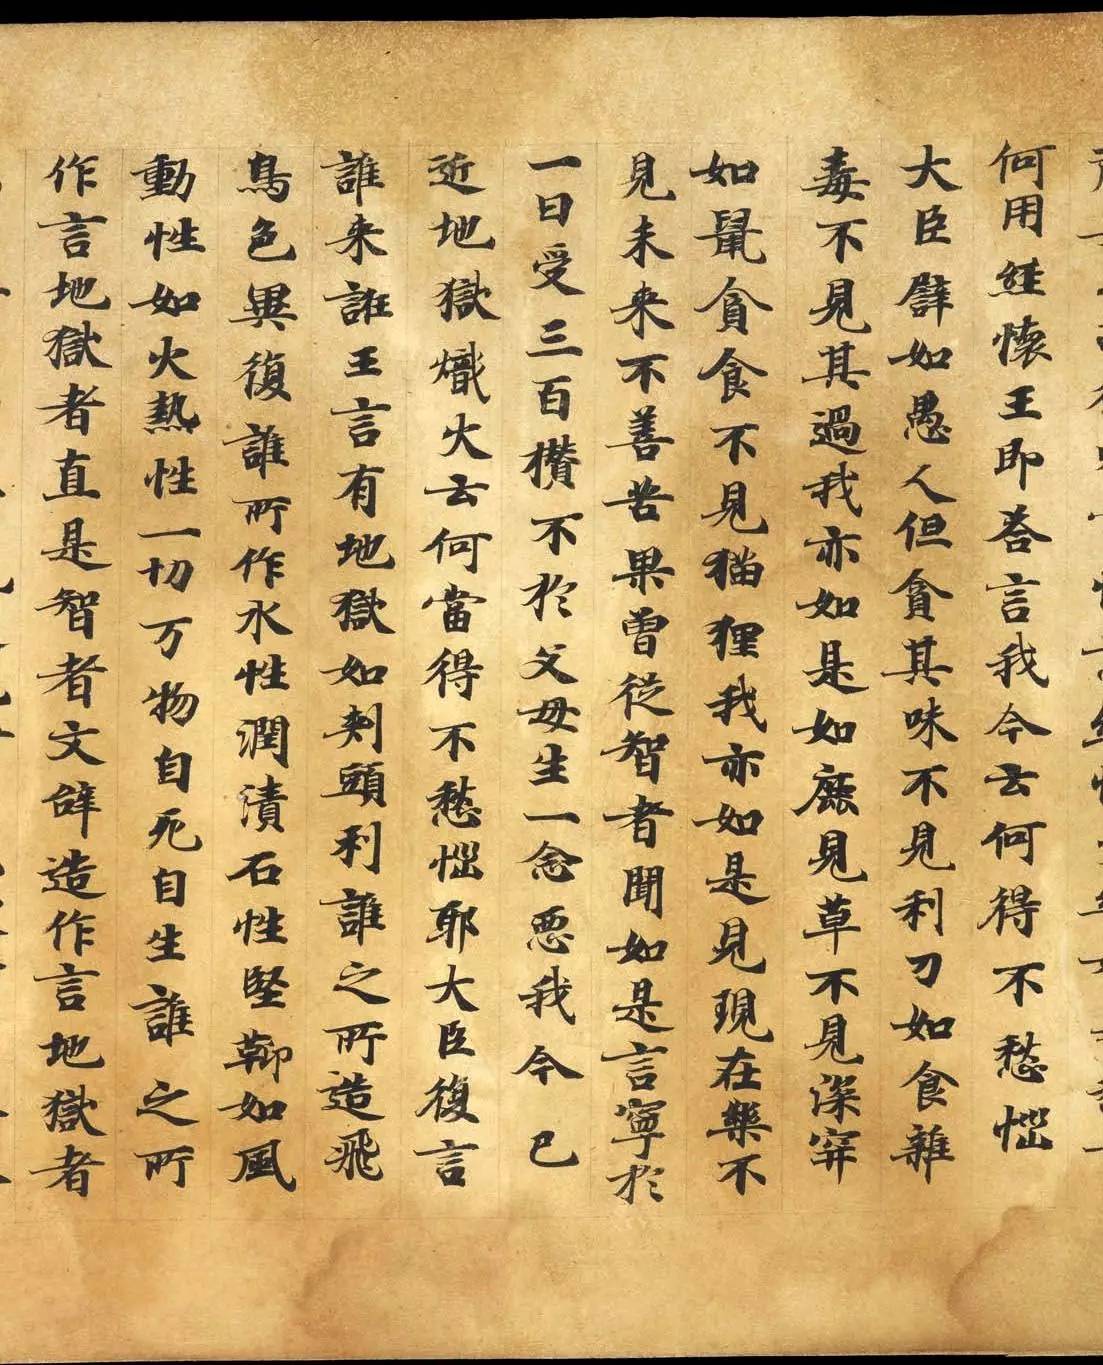 何用経懷王即荅言我今云何得不愁惱
大臣譬如愚人但貪其味不見利刀如食雜
毒不見其過我亦如是如鹿見草不見深穽
如鼠貪食不見猫狸我亦如是見現在樂不
見未来不善苦果曾従智者聞如是言寧於
一日受三百攢不於父母生一念惡我今已
近地獄熾火云何當得不愁惱耶大臣復言
誰来誑王言有地獄如刾頭利誰之所造飛
鳥色異復誰所作水性潤漬石性堅鞕如風
動性如火熱性一切万物自死自生誰之所
作言地獄者直是智者文辝造作言地獄者